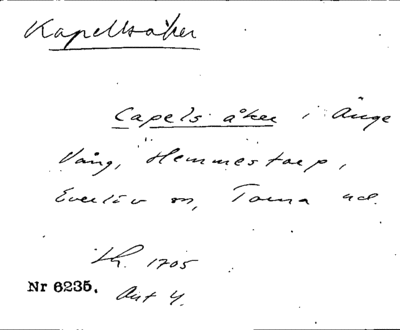 Kapellsåker
Capels åker i Änge
Vång, Hemmestorp,
Everlöv sn, Torna hd.
Lh. 1705
Nr 6235. Avt 4.